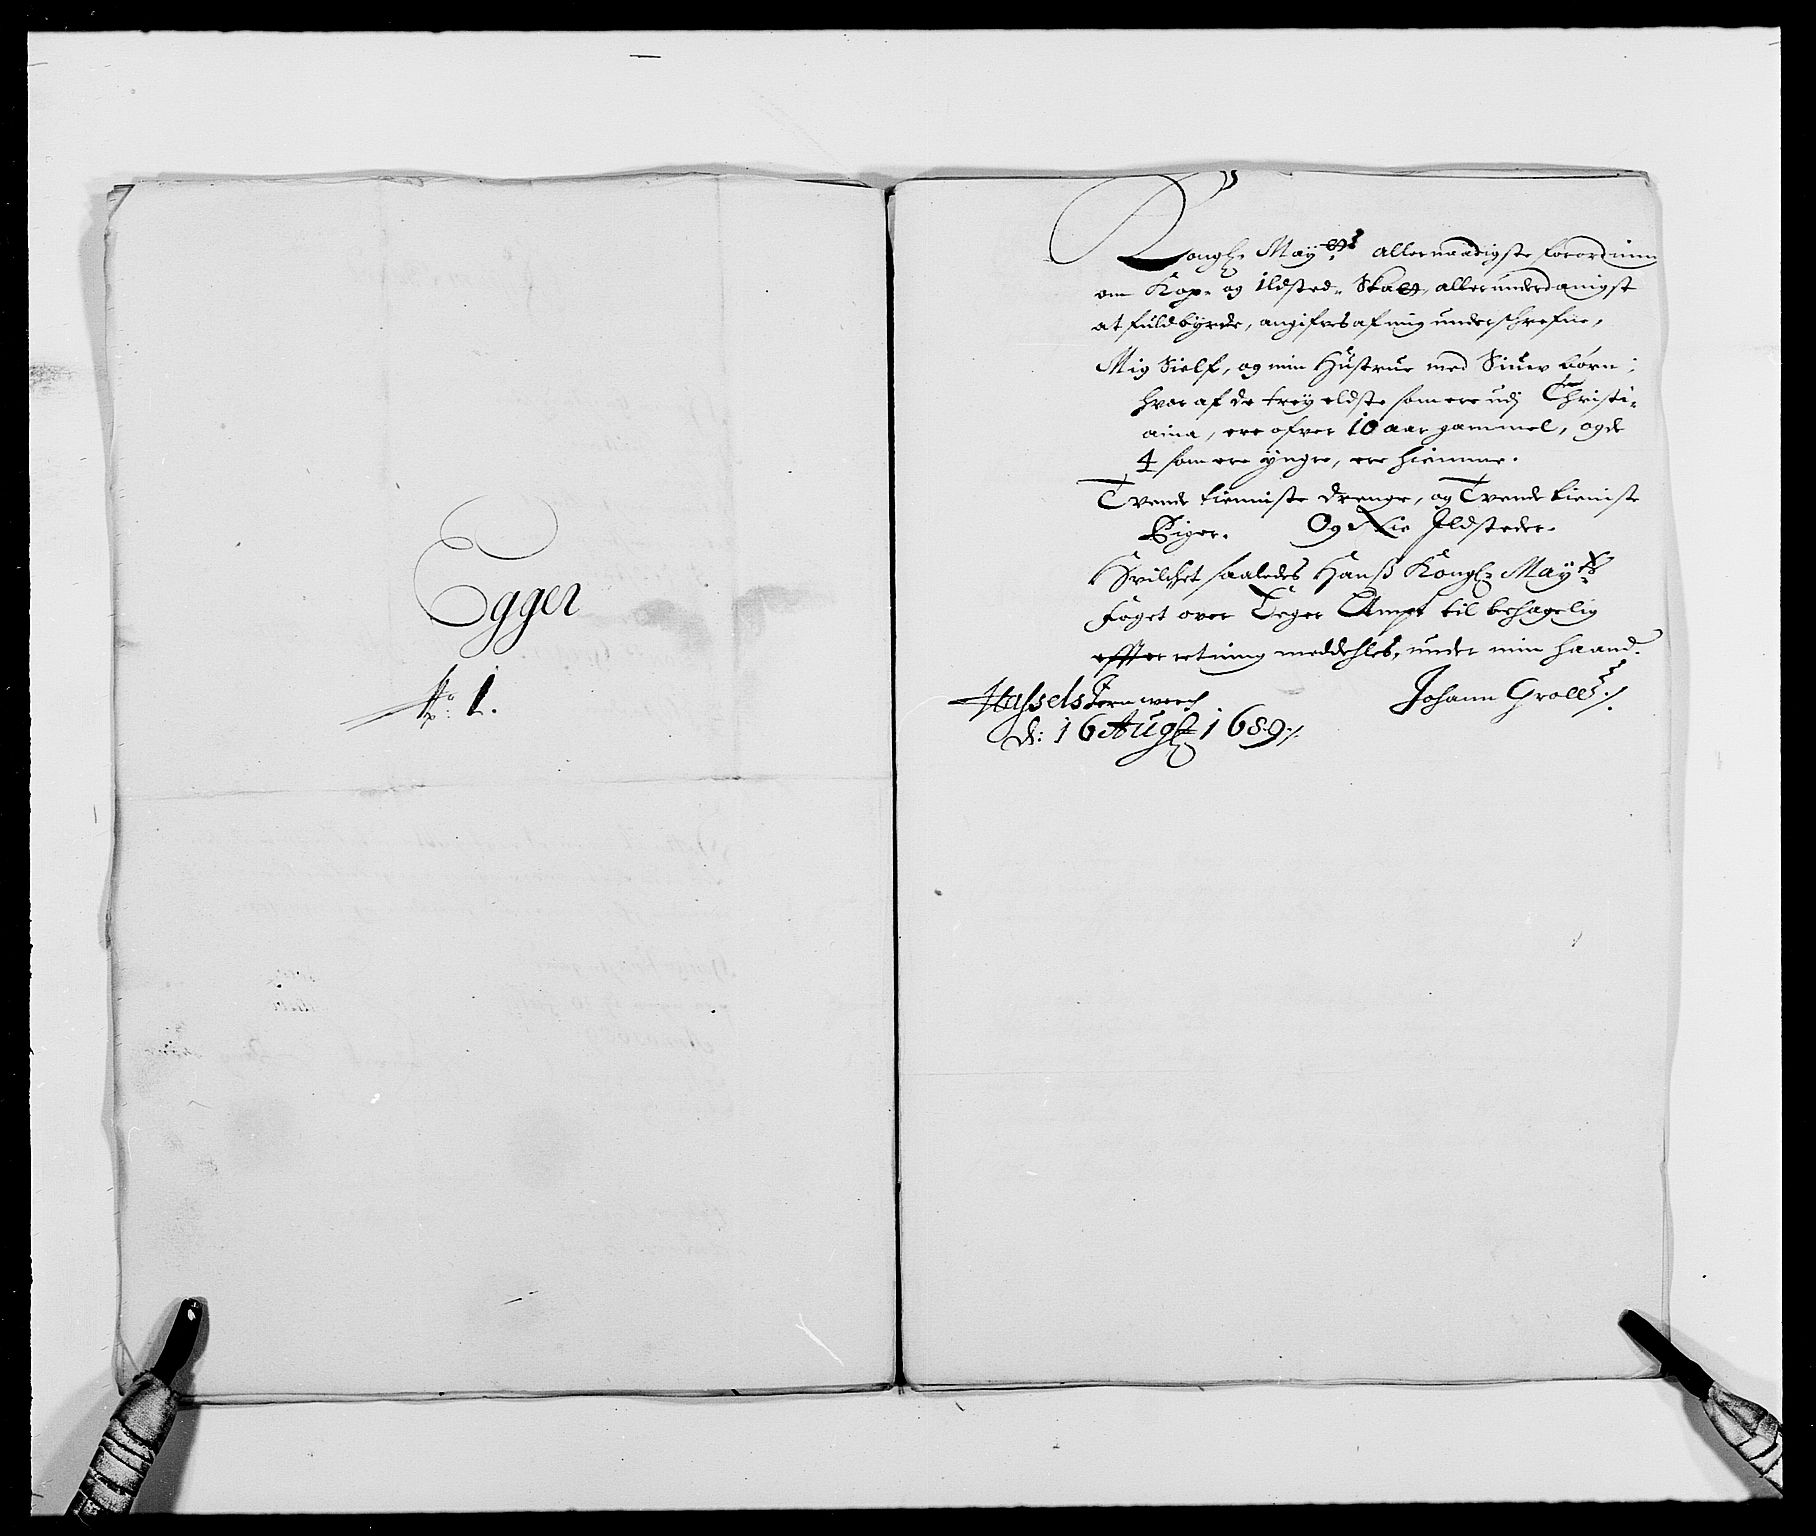 Egger
No 1.
Kongl: May:tts allernaadigste forordning
om Kop- og Ildsted- Skatt, allerunderdanigst
at fuldbyrde, angifves af mig underschrefne,
Mig Sielf, og min Hustrue med Siuv børn;
hvor af de trey eldste som ere udj Christi-
ania, ere ofver 10 aar gammel, og de
4 som ere yngre, ere hiemme.
Tvende tienniste drenge, og Tvende tieniste
Piger. Og Nie Ildsteder.
Hvilchet saaledes Hans Kongl: May:ts
Foget over Eeger Ampt til behagelig
effter retning meddehles, under min haand.
Hassels Iernverch
d: 16 Aug: 1689 ./.
Johann